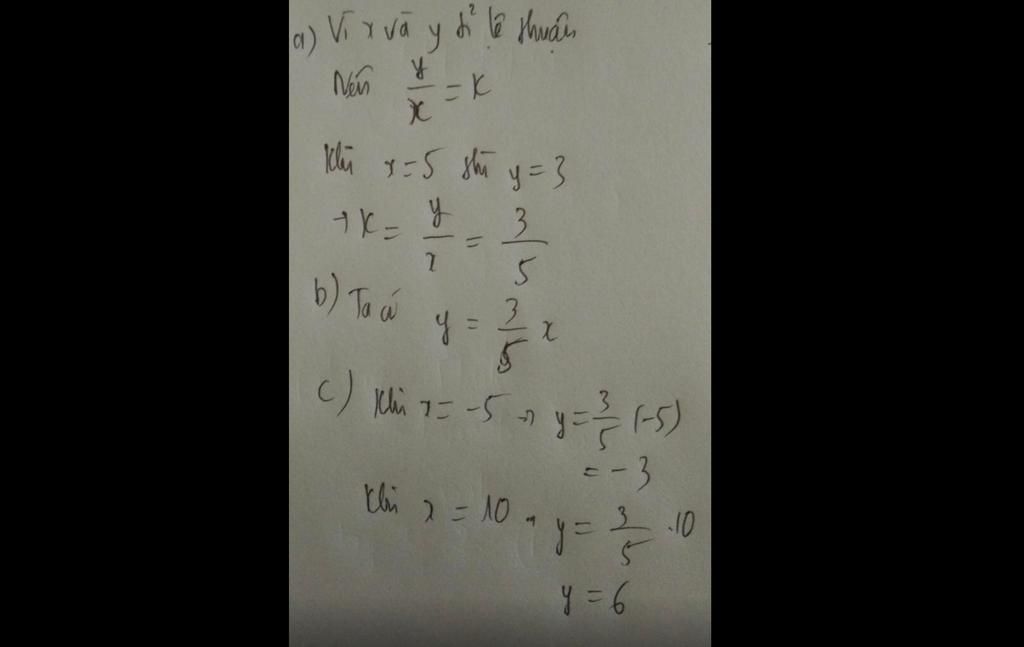 a) Vì x và y tỉ lệ thuận
Nên y/x = K
Khi x = 5 thì y = 3
→ K = y/x = 3/5
b) Ta có y = 3/5 x
c) Khi x = -5 → y = 3/5 (-5)
= -3
Khi x = 10 → y = 3/5 .10
y = 6